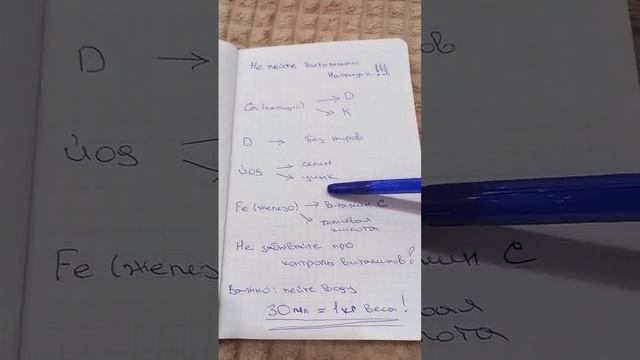 Не пейте витамины
натощак!!!
Ca (кальций) → D
→ K
D → без жиров
Йод → селен
→ цинк
Fe (железо) → витамин C
→ фолиевая
кислота
Не забывайте про
контроль витаминов!
Важно: пейте воду
30 мл = 1 кг веса!